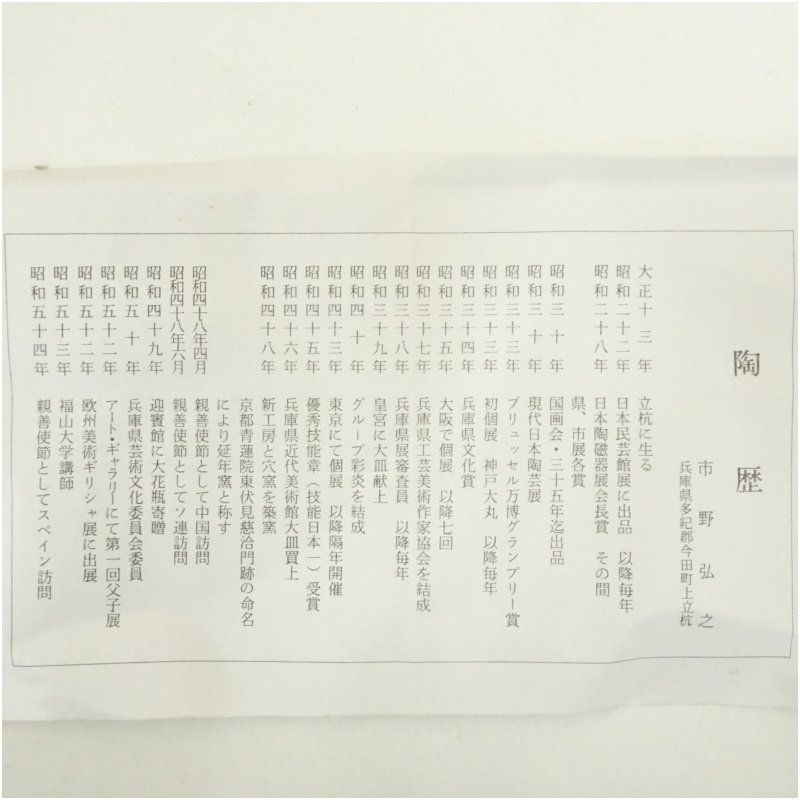 陶歴
市野弘之
兵庫県多紀郡今田町上立杭
大正十三年 立杭に生る
昭和二十二年 日本民芸館展に出品 以降毎年
昭和二十八年 日本陶磁器展会長賞 その間
県、市展各賞
昭和三十年 国画会・三十五年迄出品
昭和三十年 現代日本陶芸展
昭和三十三年 ブリュッセル万博グランプリー賞
昭和三十三年 初個展 神戸大丸 以降毎年
昭和三十四年 兵庫県文化賞
昭和三十五年 大阪で個展 以降七回
昭和三十七年 兵庫県工芸美術作家協会を結成
昭和三十八年 兵庫県展審査員 以降毎年
昭和三十九年 皇宮に大皿献上
昭和四十年 グループ彩炎を結成
昭和四十三年 東京にて個展 以降隔年開催
昭和四十五年 優秀技能章(技能日本一)受賞
昭和四十六年 兵庫県近代美術館大皿買上
昭和四十八年 新工房と穴窯を築窯
京都青蓮院東伏見慈洽門跡の命名
により延年窯と称す
昭和四十八年四月 親善使節として中国訪問
昭和四十八年六月 親善使節としてソ連訪問
昭和四十九年 迎賓館に大花瓶寄贈
昭和五十年 兵庫県芸術文化委員会委員
昭和五十二年 アート・ギャラリーにて第一回父子展
昭和五十二年 欧州美術ギリシャ展に出展
昭和五十三年 福山大学講師
昭和五十四年 親善使節としてスペイン訪問